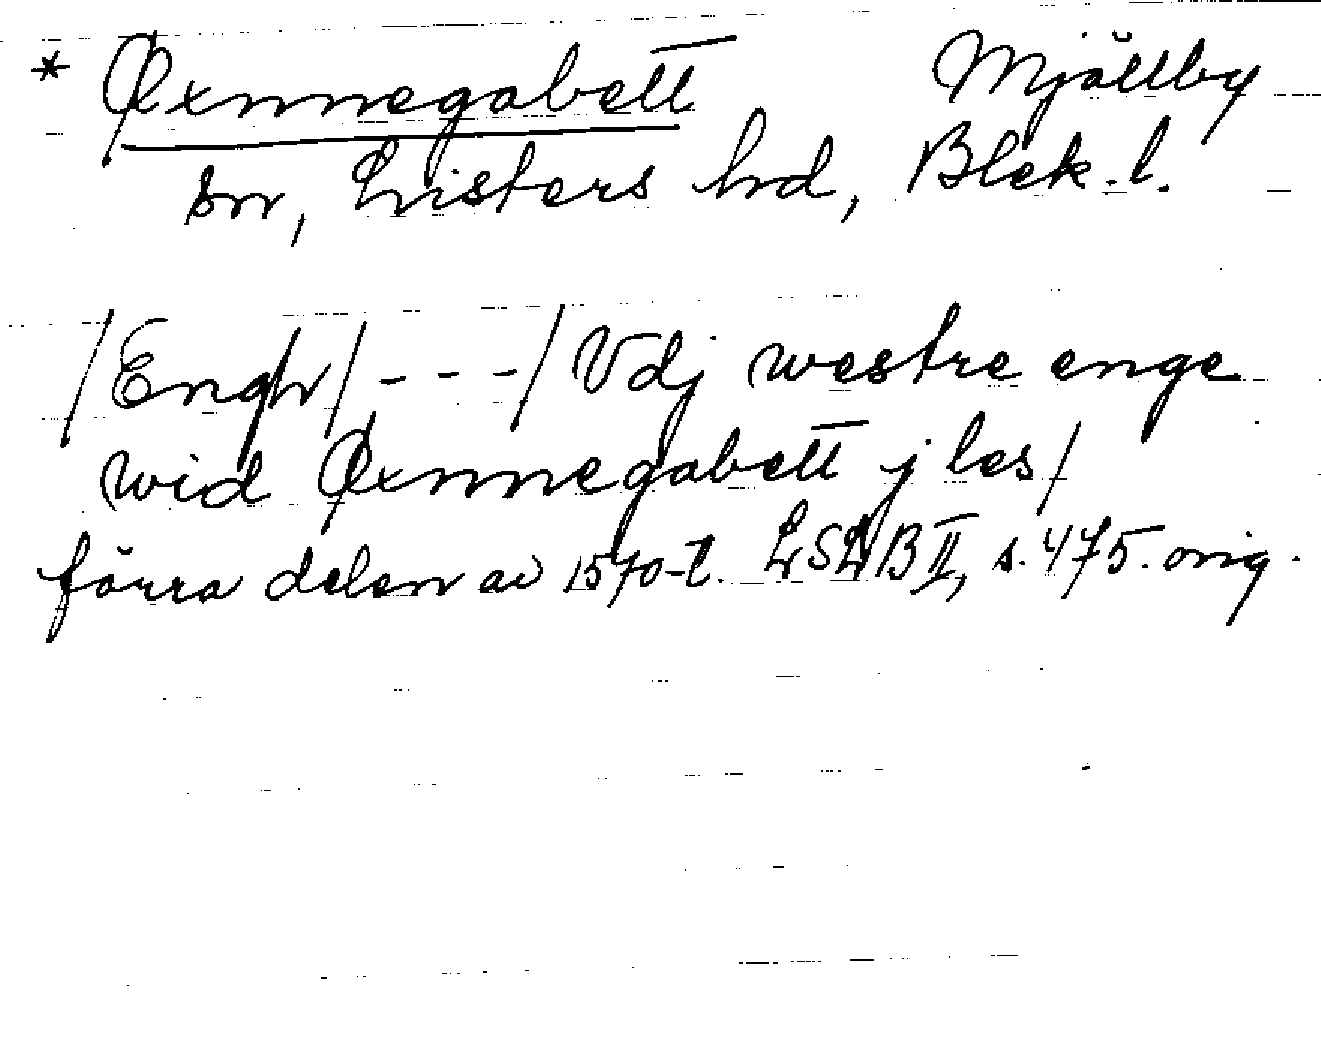 * Øxnnegabett Mjällby
sn, Listers hd, Blek. l.
/Engh/ - - - / Vdj westre enge
wid Øxnnegabett j les/
förra delen av 1570-t. LSLB II, s. 475. orig.